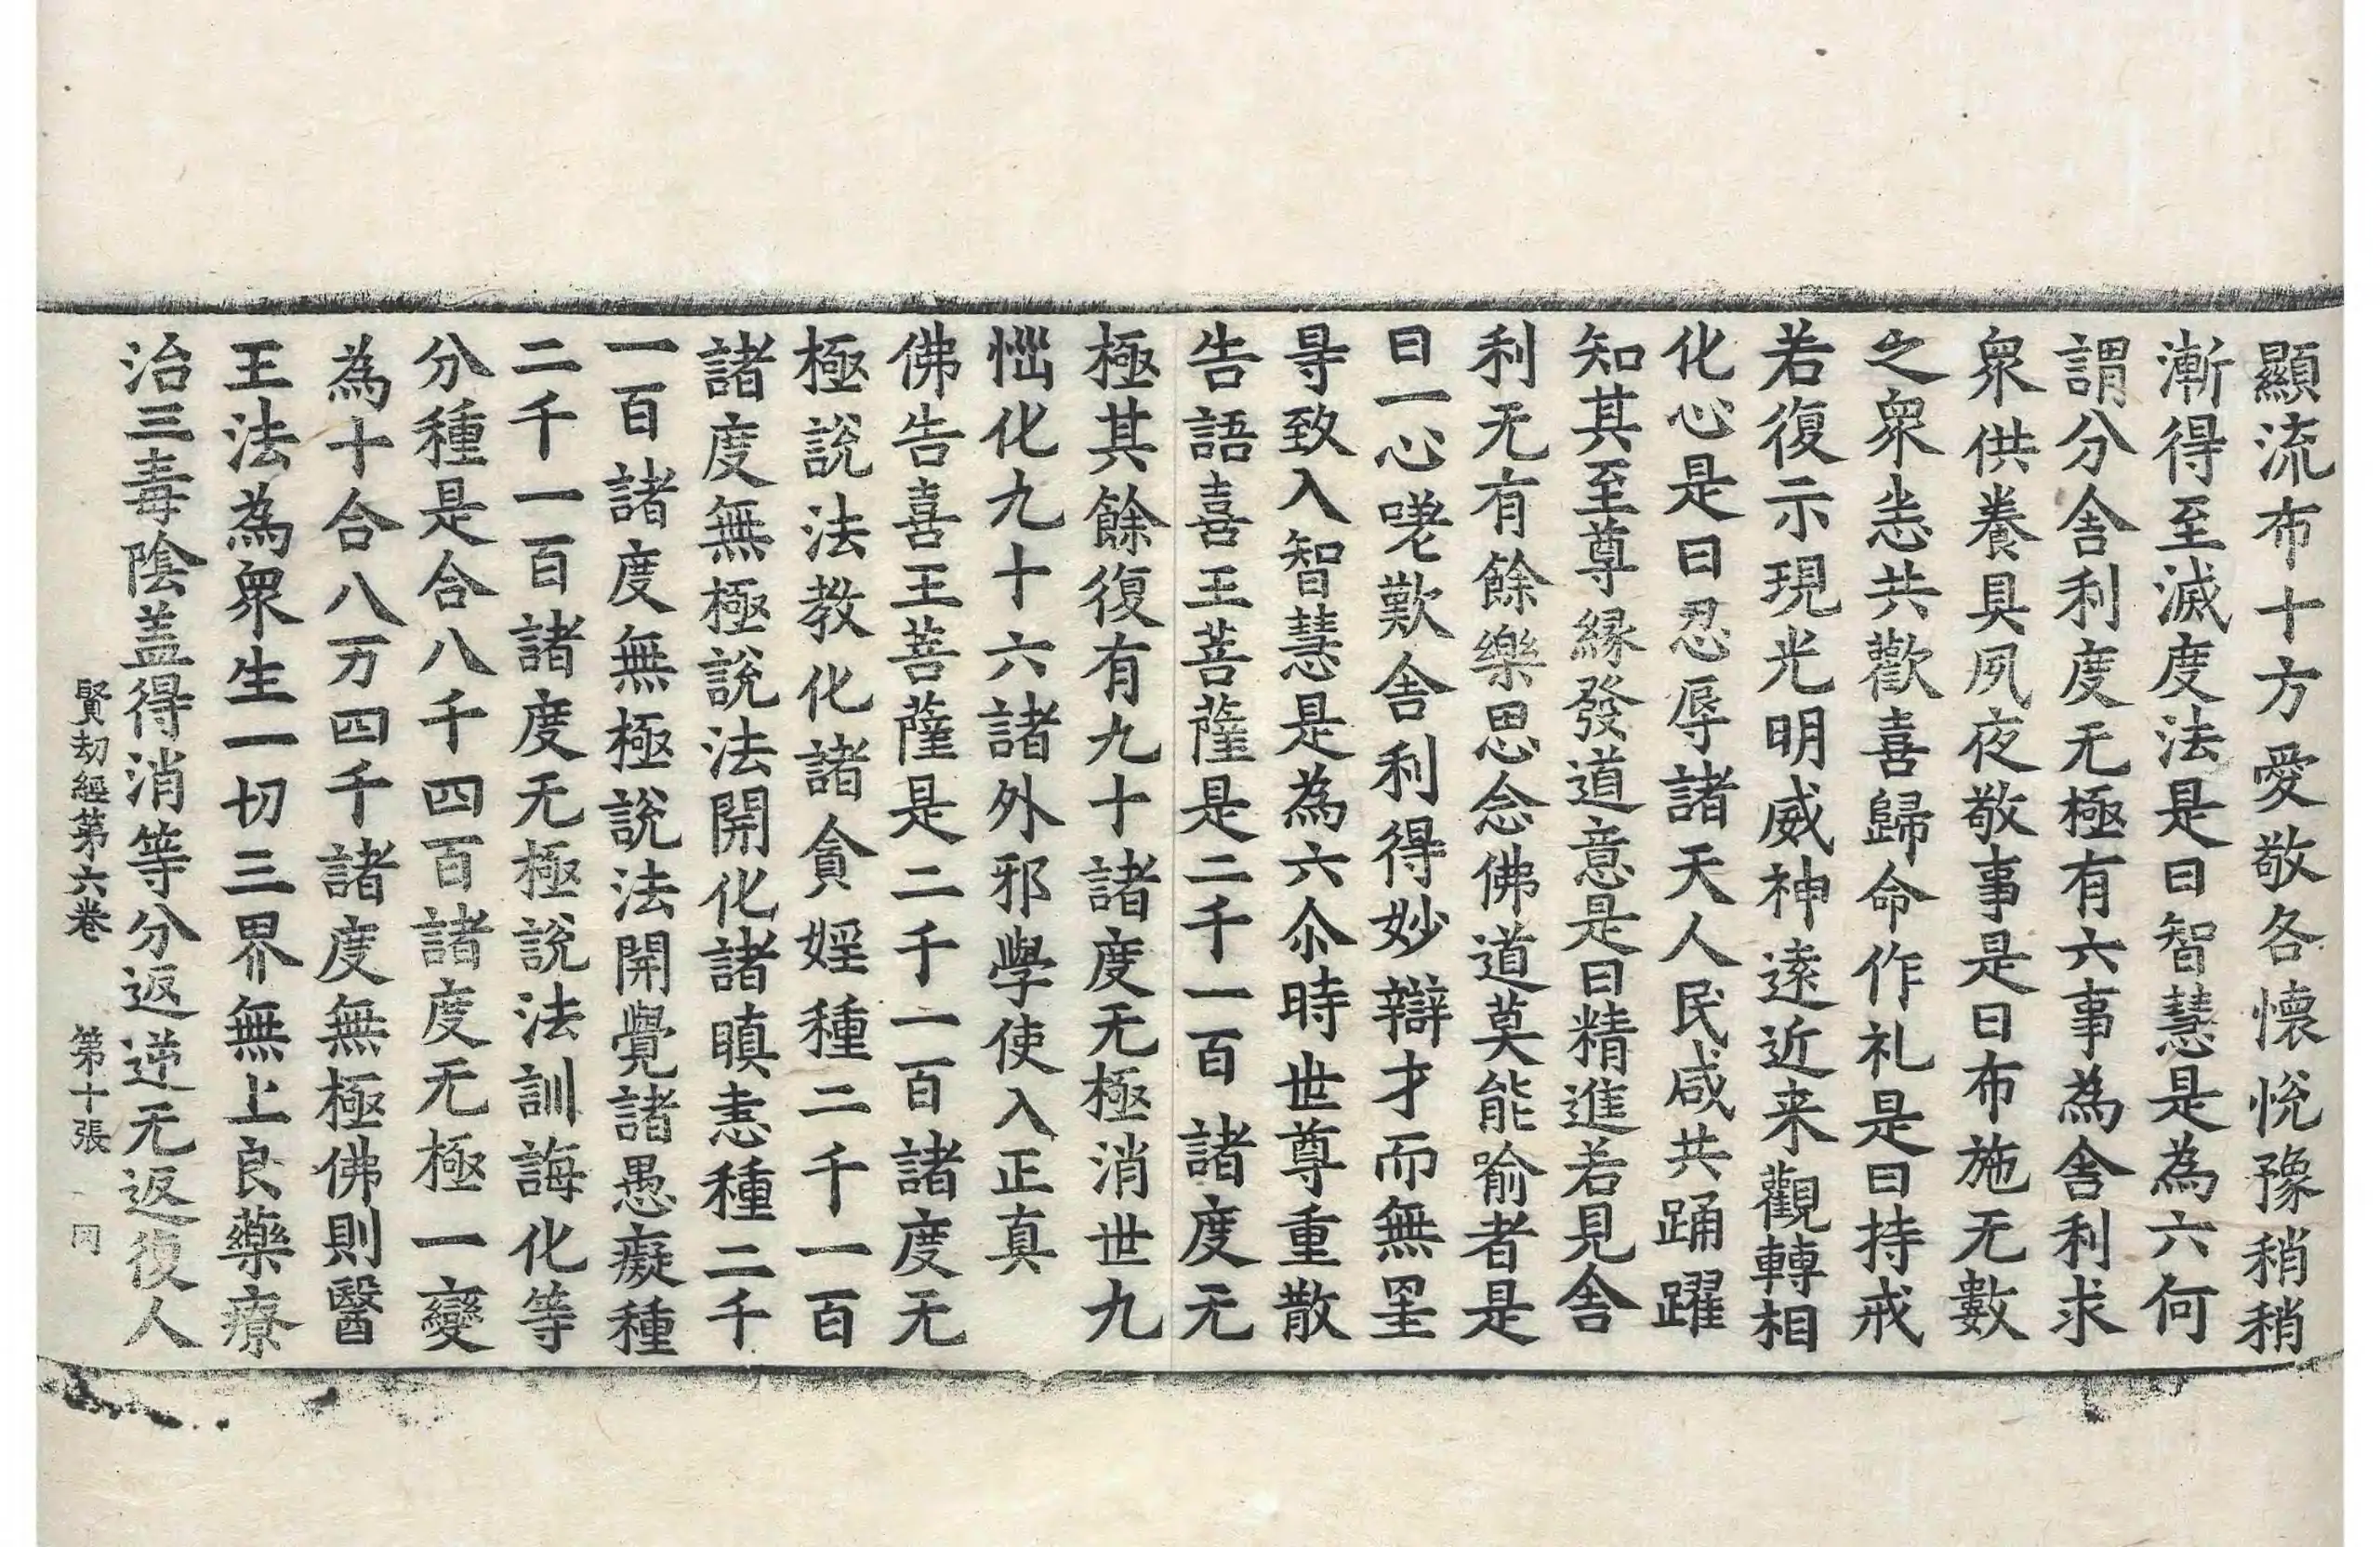 顯流布十方愛敬各懷悅豫稍稍
漸得至滅度法是曰智慧是為六何
謂分舍利度无極有六事為舍利求
衆供養具夙夜敬事是曰布施无數
之衆恙共歡喜歸命作礼是曰持戒
若復示現光明威神遠近来觀轉相
化心是曰忍辱諸天人民咸共踊躍
知其至尊縁發道意是曰精進若見舍
利无有餘樂思念佛道莫能喻者是
曰一心嗟歎舍利得妙辯才而無罣
㝵致入智慧是為六尒時世尊重散
告語喜王菩薩是二千一百諸度无
極其餘復有九十諸度无極消世九
惱化九十六諸外邪學使入正真
佛告喜王菩薩是二千一百諸度无
極說法教化諸貪婬種二千一百
諸度無極說法開化諸瞋恚種二千
一百諸度無極說法開覺諸愚癡種
二千一百諸度无極說法訓誨化等
分種是合八千四百諸度无極一變
為十合八万四千諸度無極佛則醫
王法為衆生一切三界無上良藥療
治三毒陰盖得消等分返逆无返復人
賢劫經第六卷 第十張 同